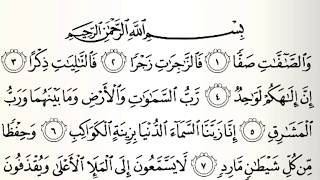 بِسْمِ ٱللَّهِ ٱلرَّحْمَٰنِ ٱلرَّحِيمِ
وَٱلصَّٰٓفَّٰتِ صَفًّا ١ فَٱلزَّٰجِرَٰتِ زَجْرًا ٢ فَٱلتَّٰلِيَٰتِ ذِكْرًا ٣
إِنَّ إِلَٰهَكُمْ لَوَٰحِدٌ ٤ رَّبُّ ٱلسَّمَٰوَٰتِ وَٱلْأَرْضِ وَمَا بَيْنَهُمَا وَرَبُّ
ٱلْمَشَٰرِقِ ٥ إِنَّا زَيَّنَّا ٱلسَّمَآءَ ٱلدُّنْيَا بِزِينَةٍ ٱلْكَوَاكِبِ ٦ وَحِفْظًا
مِّن كُلِّ شَيْطَٰنٍ مَّارِدٍ ٧ لَّا يَسَّمَّعُونَ إِلَى ٱلْمَلَإِ ٱلْأَعْلَىٰ وَيُقْذَفُونَ